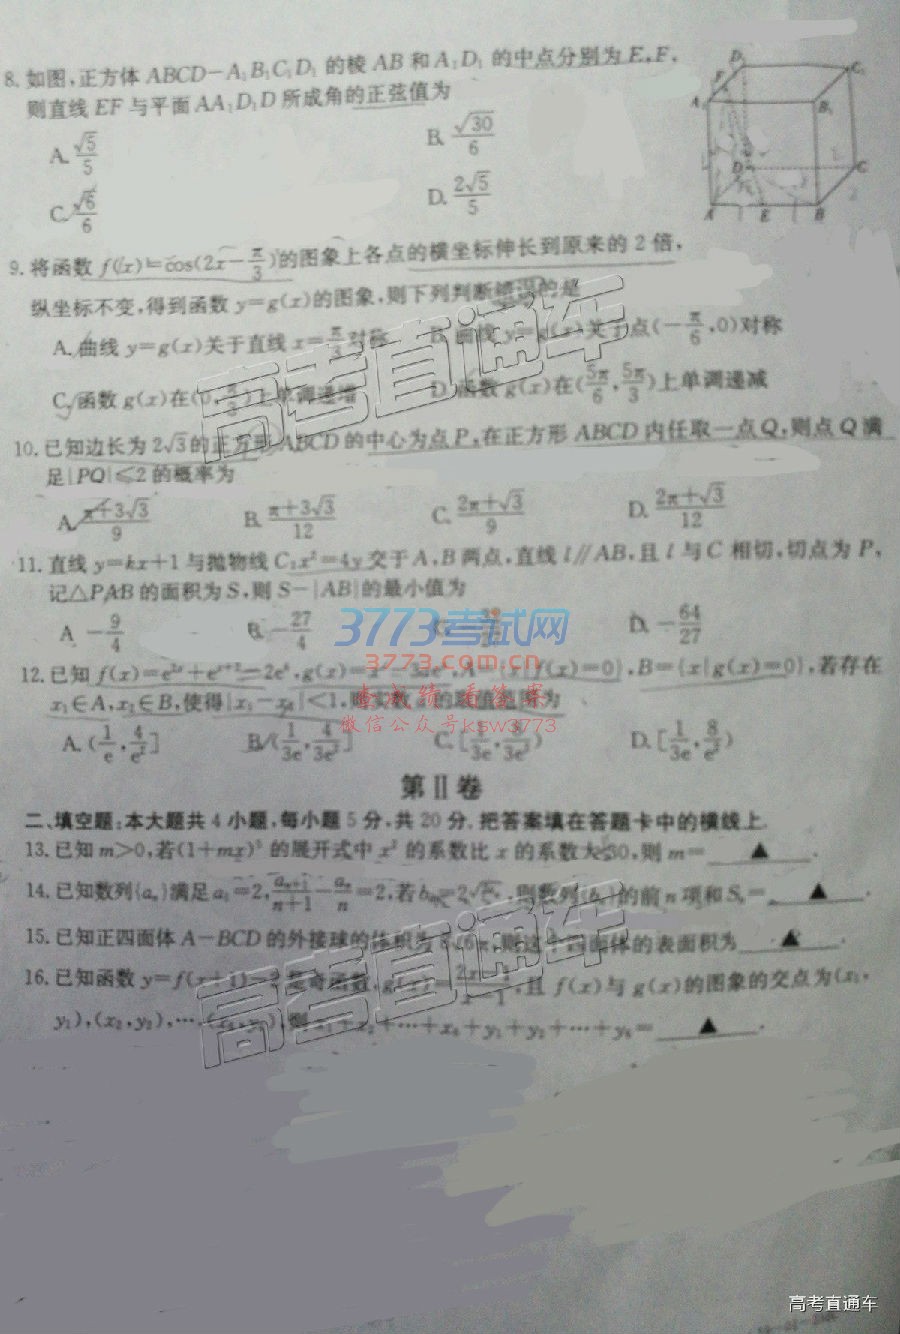 8. 如图,正方体 ABCD-A₁B₁C₁D₁ 的棱 AB 和 A₁D₁ 的中点分别为 E,F,
则直线 EF 与平面 AA₁D₁D 所成角的正弦值为
A. √5/5 B. √30/6
C. √6/6 D. 2√5/5
D₁ C₁ F A₁ B₁ D C A E B
9. 将函数 f(x)=cos(2x-π/3)的图象上各点的横坐标伸长到原来的 2 倍,
纵坐标不变,得到函数 y=g(x)的图象,则下列判断错误的是
A. 曲线 y=g(x)关于直线 x=π/3对称 B. 曲线 y=g(x)关于点(-π/6,0)对称
C. 函数 g(x)在(0,π/3)上单调递增 D. 函数 g(x)在(5π/6,5π/3)上单调递减
10. 已知边长为 2√3的正方形 ABCD 的中心为点 P,在正方形 ABCD 内任取一点 Q,则点 Q 满
足|PQ|≤2 的概率为
A. π+3√3/9 B. π+3√3/12 C. 2π+√3/9 D. 2π+√3/12
11. 直线 y=kx+1 与抛物线 C:x²=4y 交于 A,B 两点,直线 l∥AB,且 l 与 C 相切,切点为 P,
记△PAB 的面积为 S,则 S-|AB|的最小值为
A. -9/4 B. -27/4 C. D. -64/27
3773考试网
3773.com.cn
查成绩 看答案
微信公众号ksw3773
12. 已知 f(x)=
,B={x|g(x)=0},若存在
x₁∈A,x₂∈B,使得|x₁-x₂|<1,则实数 a 的取值范围为
A. (1/e,4/e²] B. (1/3e,4/3e²] C. [1/3e, D. [1/3e,8/e²)
第Ⅱ卷
二、填空题:本大题共 4 小题,每小题 5 分,共 20 分. 把答案填在答题卡中的横线上.
13. 已知 m>0,若(1+mx)⁵ 的展开式中 x² 的系数比 x 的系数大 30,则 m= ▲ .
14. 已知数列{aₙ}满足 a₁=2,aₙ₊₁/n+1-aₙ/n=2,若 bₙ=2√aₙ,则数列{bₙ}的前 n 项和 Sₙ= ▲ .
15. 已知正四面体 A-BCD 的外接球的体积为 8√6π,则这个四面体的表面积为 ▲ .
16. 已知函数 y=f(x+1)-2 是奇函数,g(x)=2x-1/x-1,且 f(x)与 g(x)的图象的交点为(x₁,
y₁),(x₂,y₂),…,(x₆,y₆),则 x₁+x₂+…+x₆+y₁+y₂+…+y₆= ▲ .
高考直通车
高考直通车
高考直通车